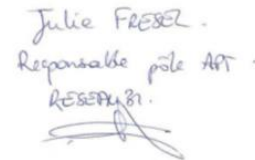 Julie FRESEL.
Responsable pôle APT.
RESEAU 31.